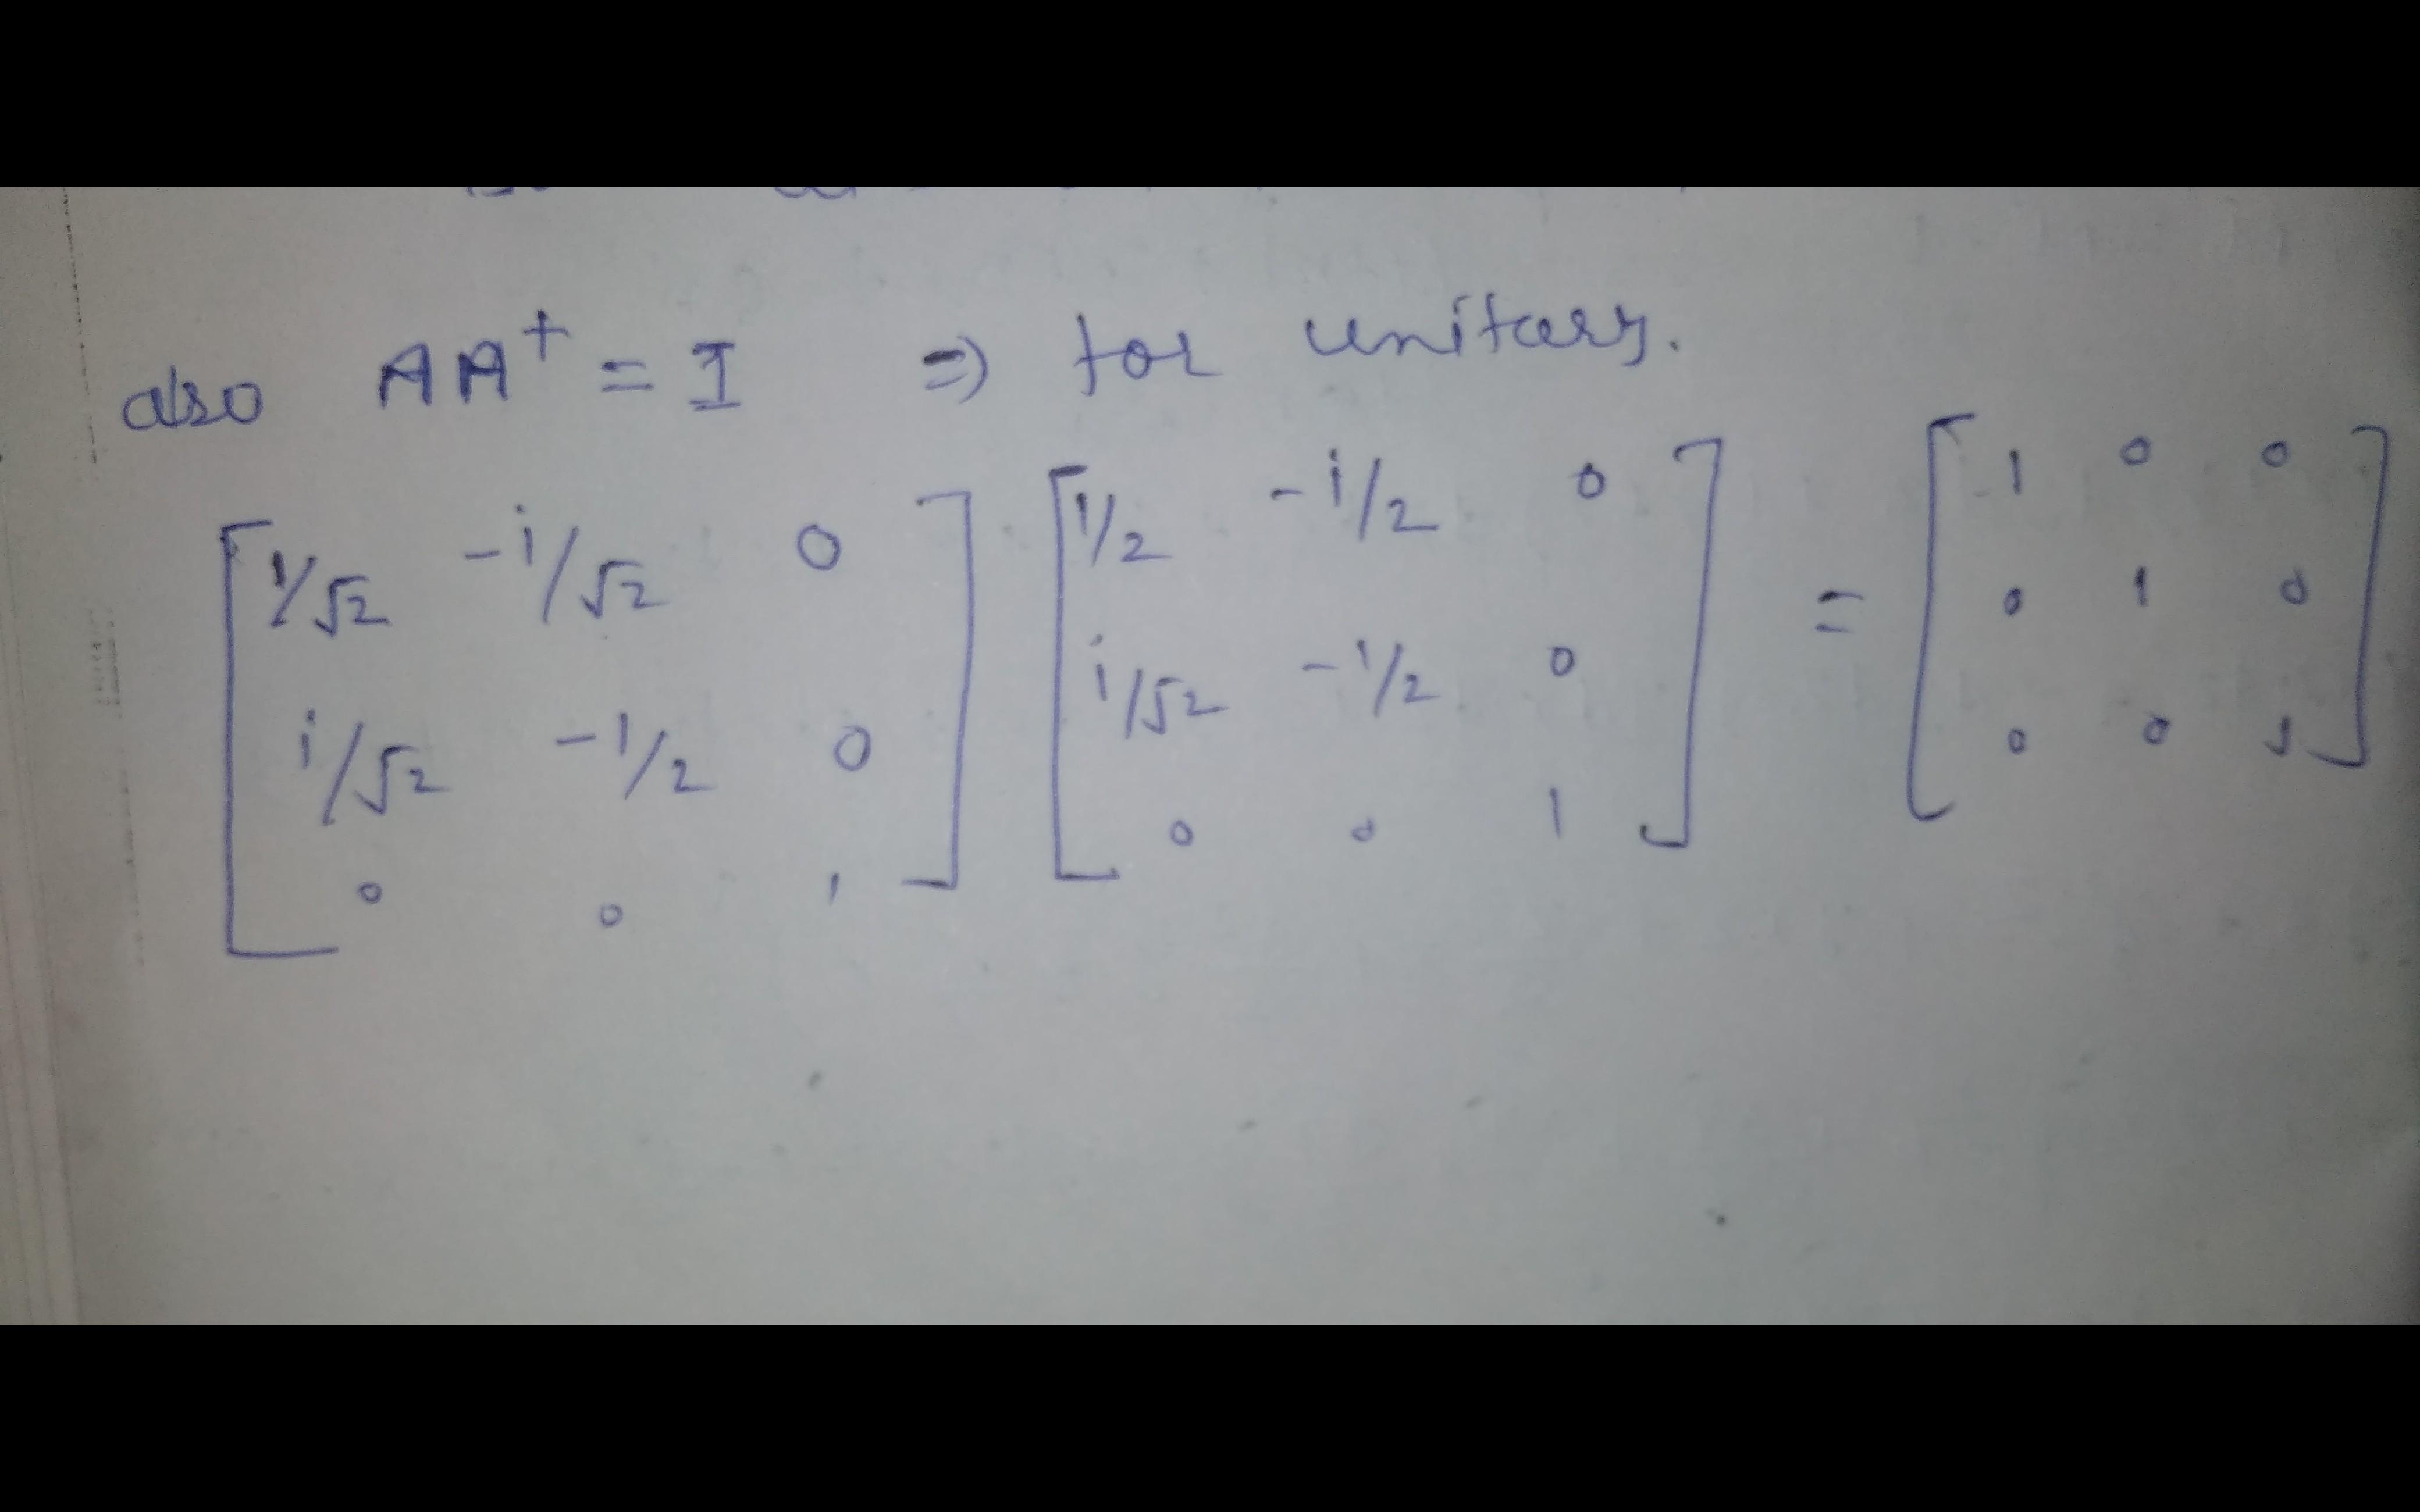 also AA† = I ⇒ for unitary.
[1/√2 -i/√2 0] [1/2 -i/2 0] [1 0 0]
[i/√2 -1/2 0] [i/√2 -1/2 0] = [0 1 0]
[0 0 1] [0 0 1] [0 0 1]